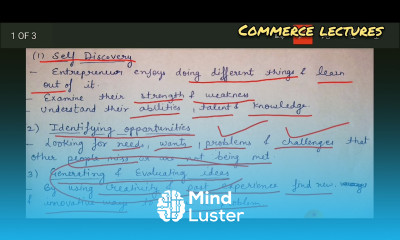 COMMERCE LECTURES
1 OF 3
(1) Self Discovery
- Entrepreneur enjoys doing different things & learn
out of it.
- Examine their strength & weakness
- Understand their abilities, talent & knowledge
2) Identifying opportunities
- Looking for needs, wants, problems & challenges that
other people miss or are not being met
3) Generating & Evaluating ideas
- By using creativity & past experience find new
& innovative ways to problem
Mind
Luster